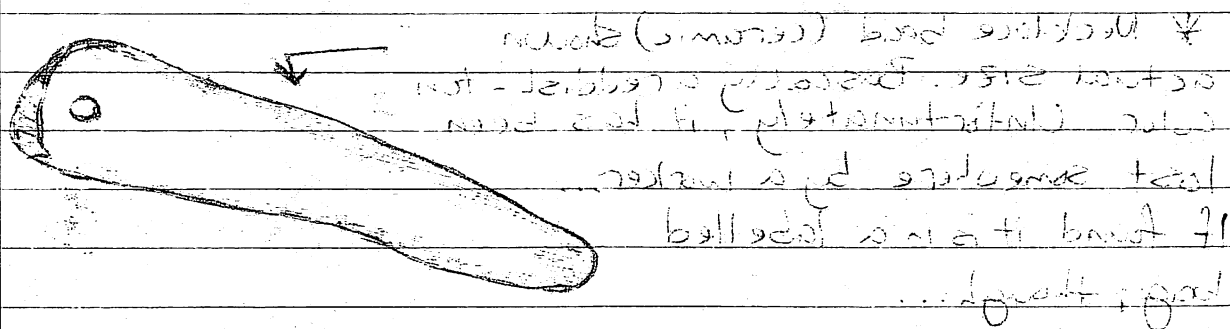 * Necklace bead (ceramic) shown
actual size. Basically a reddish-tan
color. Unfortunately, it has been
lost somewhere by a worker...
If found it is in a labelled
bag, though...